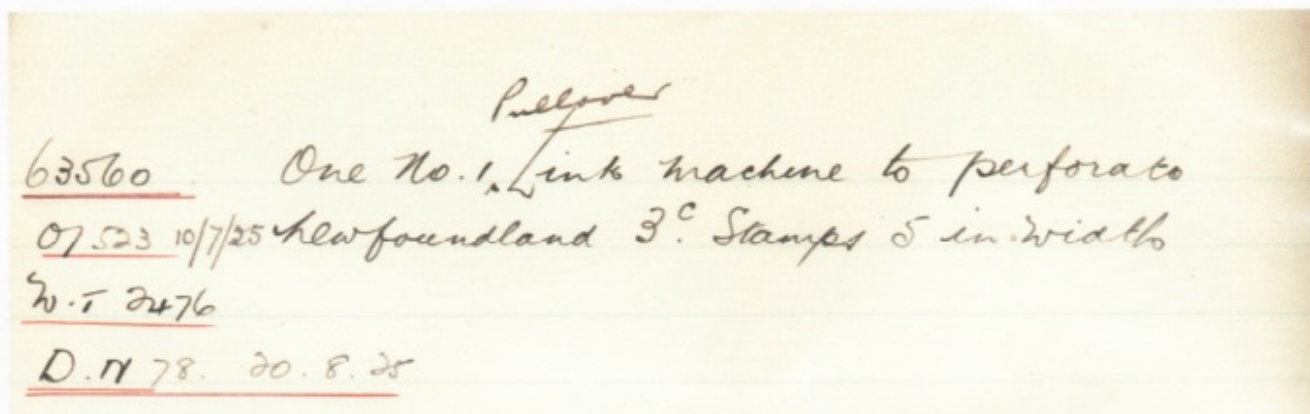 Pullover
63560 One No. 1 Link machine to perforate
O/523 10/7/25 Newfoundland 3c. Stamps 5 in width
W.T 2476
D.N 78. 20.8.25